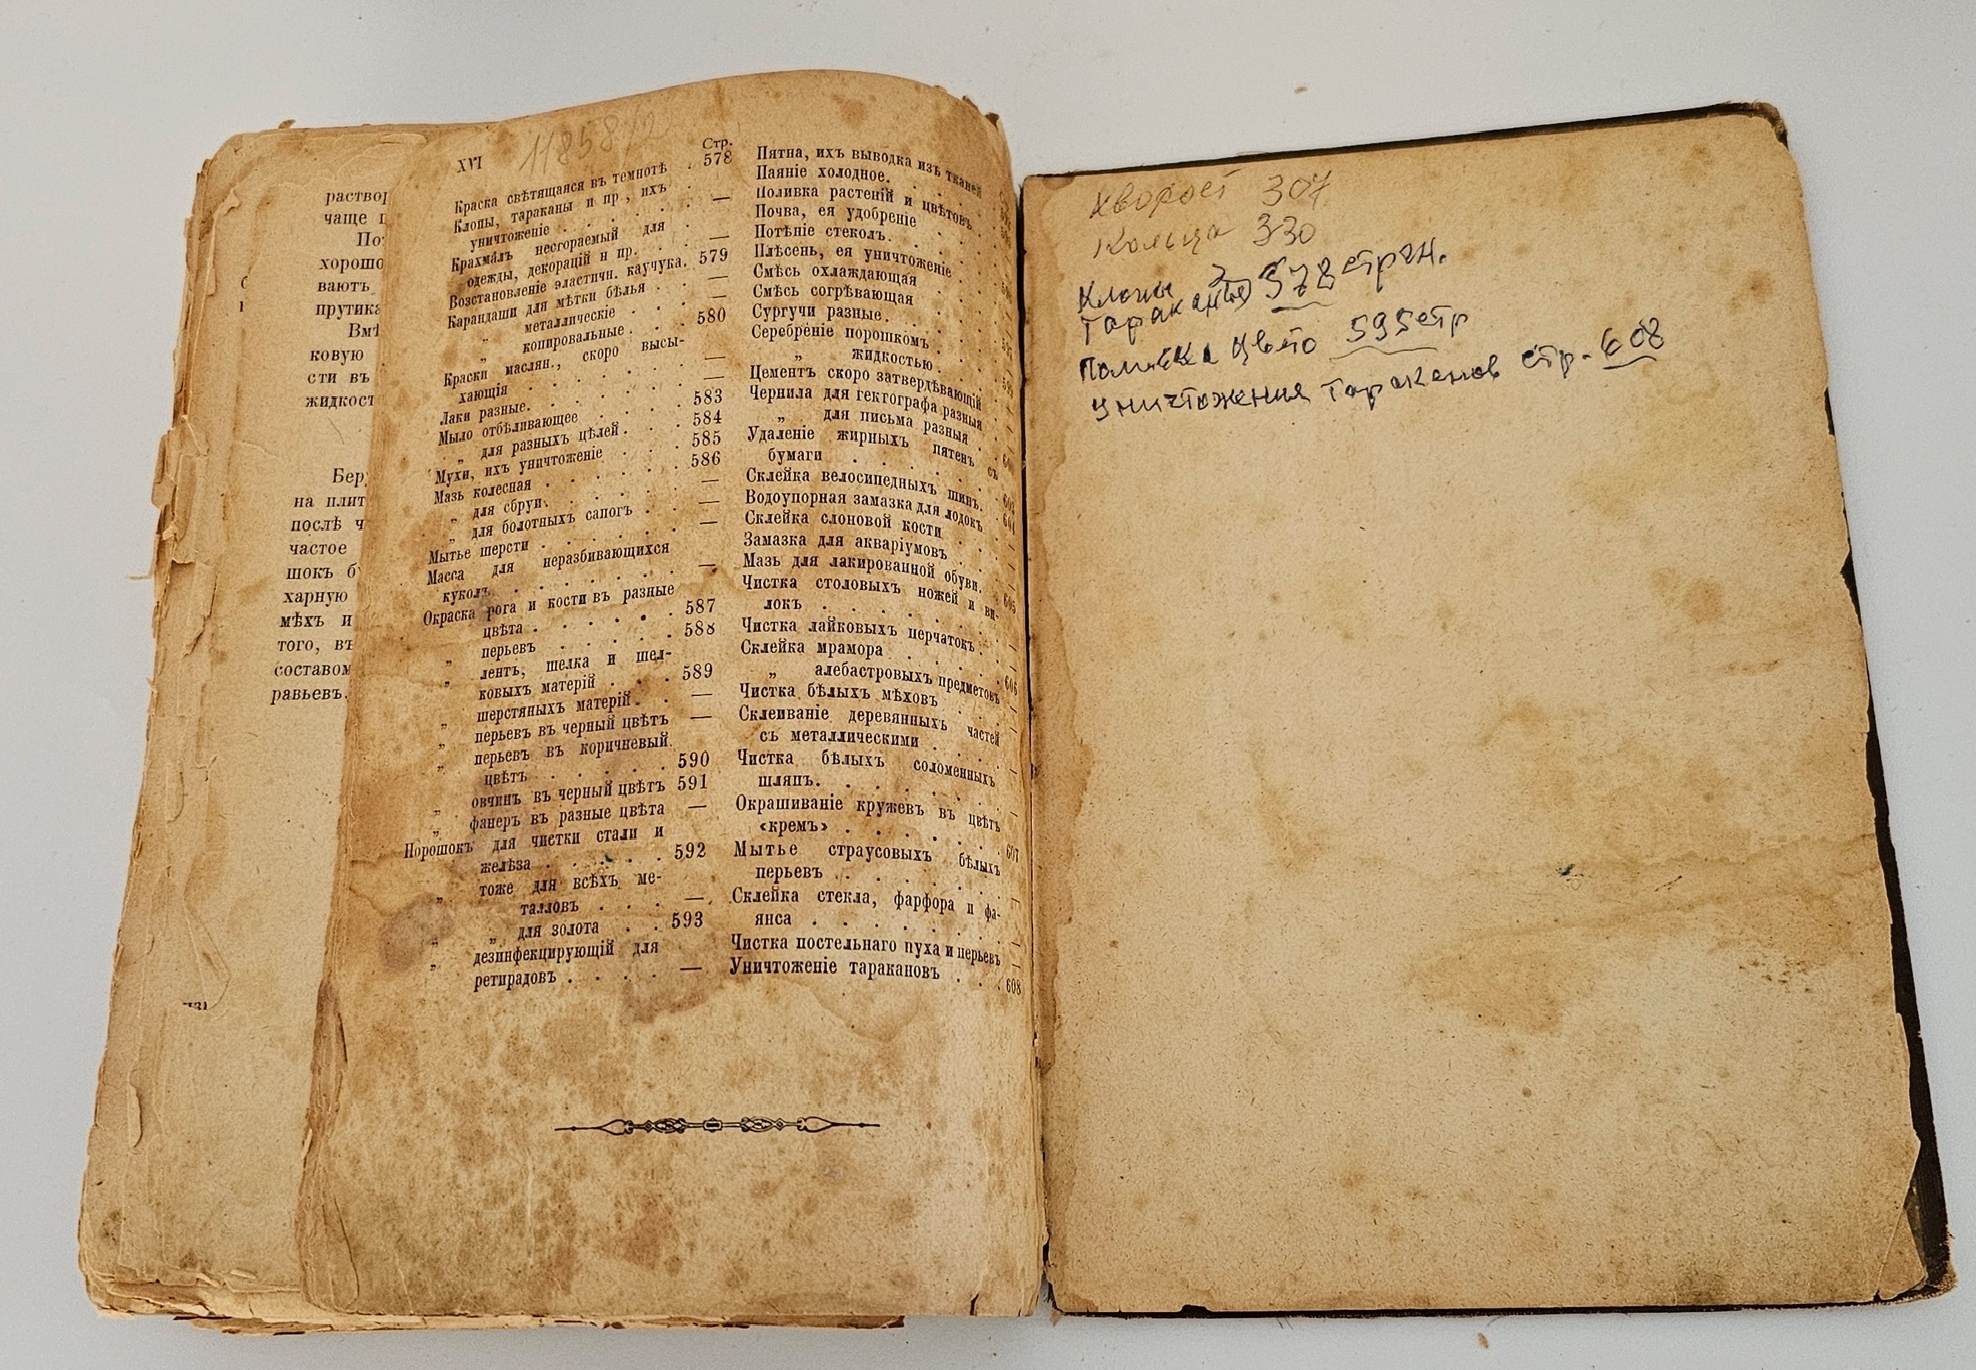 раствор
чаще п
хорошо
вають
прутика
ковую
сти въ
жидкост
на плит
послѣ ч
частое
шокъ б
харную
мѣхъ и
того, въ
составом
равьевъ.
XVI
Стр.
Краска свѣтящаяся въ темнотѣ . 578
Клопы, тараканы и пр., ихъ
уничтоженіе . . . . . . —
Крахмалъ несгораемый для
одежды, декорацій и пр. . . —
Возстановленіе эластичн. каучука. 579
Карандаши для мѣтки бѣлья . . —
„ металлическіе . . . —
„ копировальные . . . 580
Краски маслян., скоро высы-
хающія . . . . . . . —
Лаки разные. . . . . . . —
Мыло отбѣливающее . . . . 583
„ для разныхъ цѣлей . . . 584
Мухи, ихъ уничтоженіе . . . 585
Мазь колесная . . . . . . 586
„ для сбруи. . . . . . —
„ для болотныхъ сапогъ . . —
Мытье шерсти . . . . . . —
Масса для неразбивающихся
куколъ . . . . . . . —
Окраска рога и кости въ разные
цвѣта . . . . . . 587
„ перьевъ . . . . . . 588
„ лентъ, шелка и шел-
ковыхъ матерій . . . 589
„ шерстяныхъ матерій . . —
„ перьевъ въ черный цвѣтъ —
„ перьевъ въ коричневый
цвѣтъ . . . . . . 590
„ овчинъ въ черный цвѣтъ 591
„ фанеръ въ разные цвѣта —
Порошокъ для чистки стали и
желѣза . . . . . . 592
„ тоже для всѣхъ ме-
талловъ . . . . —
„ „ для золота . . 593
„ дезинфекцирующій для
ретирадовъ . . . . —
Пятна, ихъ выводка изъ тканей
Паяніе холодное. . . . .
Поливка растеній и цвѣтовъ
Почва, ея удобреніе . . .
Потѣніе стеколъ. . . . .
Плѣсень, ея уничтоженіе . .
Смѣсь охлаждающая . . .
Смѣсь согрѣвающая . . .
Сургучи разные. . . . .
Серебреніе порошкомъ . . .
„ жидкостью . . .
Цементъ скоро затвердѣвающій
Чернила для гектографа разныя
„ для письма разныя .
Удаленіе жирныхъ пятенъ съ
бумаги . . . . . .
Склейка велосипедныхъ шинъ. .
Водоупорная замазка для лодокъ
Склейка слоновой кости . . .
Замазка для акваріумовъ . .
Мазь для лакированной обуви. .
Чистка столовыхъ ножей и ви-
локъ . . . . . . 
Чистка лайковыхъ перчатокъ . .
Склейка мрамора . . . . .
„ алебастровыхъ предметовъ 606
Чистка бѣлыхъ мѣховъ . . .
Склеиваніе деревянныхъ частей
съ металлическими . . . .
Чистка бѣлыхъ соломенныхъ
шляпъ. . . . . . .
Окрашиваніе кружевъ въ цвѣтъ
«кремъ» . . . . . . 607
Мытье страусовыхъ бѣлыхъ
перьевъ . . . . . .
Склейка стекла, фарфора и фа-
янса . . . . . . . —
Чистка постельнаго пуха и перьевъ —
Уничтоженіе таракановъ . . . 608
Хворост 307
Кольца 330
Клопы
Тараканы 578 стран.
Поливка цвето 595 стр
Уничтожения Тараканов стр. 608